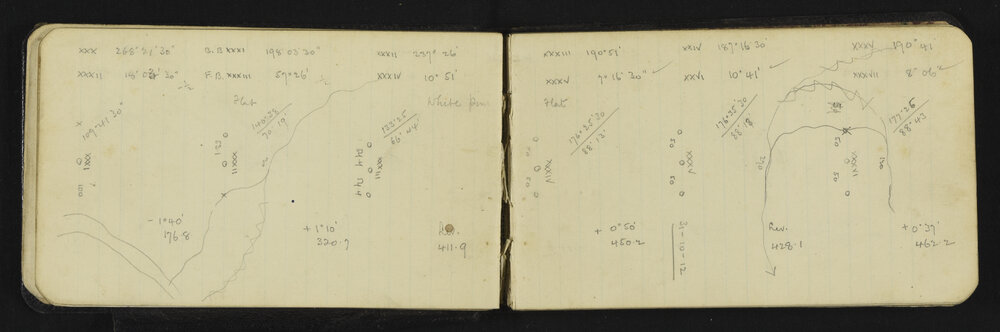 XXX 268° 21' 30" B.B XXXI 198° 03' 30" XXXII 237° 26'
XXXII 18° 03' 30" F.B. XXXIII 57° 26' XXXIV 10° 51'
-½
½
Flat
White Pine
109° 41' 30"
140° 38
70° 19'
133° 25
66° 44'
XXXI
100
531
XXXII
XXXIII
- 1° 40'
176.8
+ 1° 10'
320.7
Rev.
411.9
XXXIII 190° 51' XXIV 187° 16' 30 XXXV 190° 41'
XXXV 7° 16' 30" XXVI 10° 41' XXXVII 8° 06'
Flat
176° 25' 30
88° 12'
176° 25' 30
88° 18
177° 26
88° 43
50
XXXIV
50
XXXV
50
50
XXXVI
50
+ 0° 50'
450.2
31-10-12
Rev.
428.1
+ 0° 37'
462.2